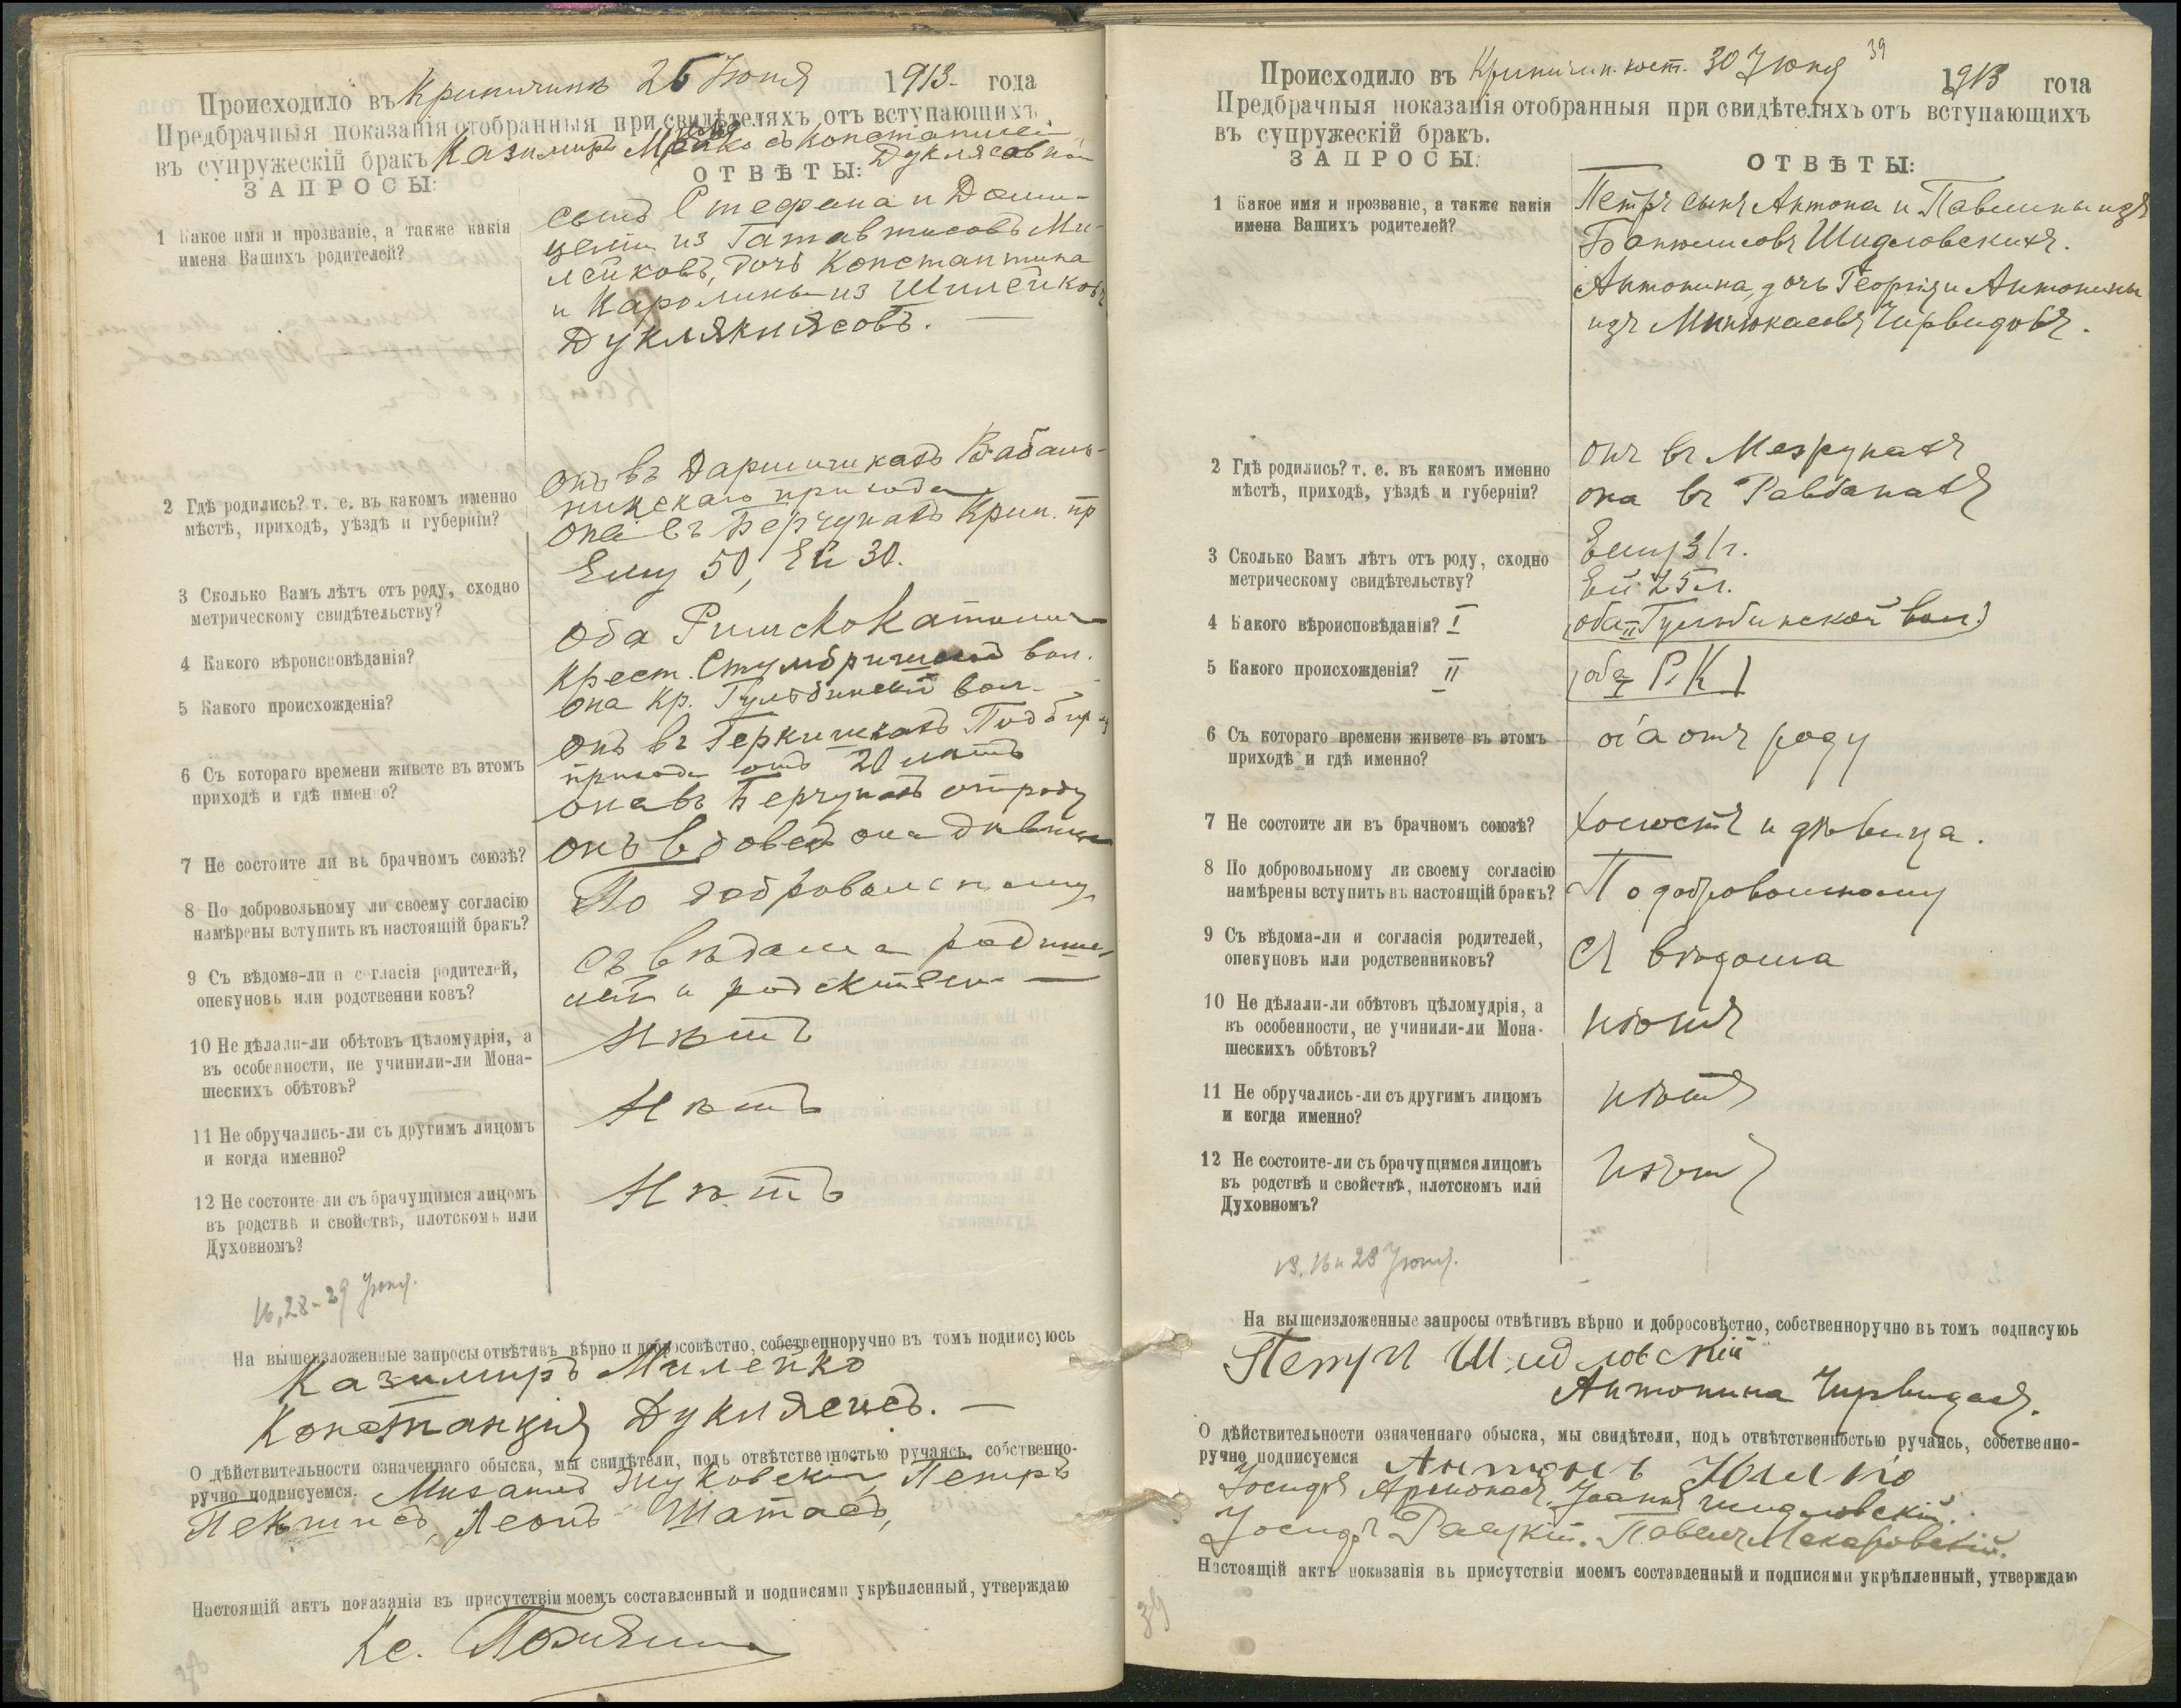 Происходило въ Крипичинъ 25 Іюня 1913 года
Предбрачныя показанія отобранныя при свидѣтеляхъ отъ вступающихъ
въ супружескій бракъ Казимиръ съ Констанціей
ЗАПРОСЫ:
ОТВѢТЫ:
1 Какое имя и прозваніе, а также какія
имена Вашихъ родителей?
сынъ Стефана и Доми-
целіи изъ Ми-
лейковъ, дочь Константина
и Каролины из Шилейковъ
Дуклякнясовъ.
2 Гдѣ родились? т. е. въ какомъ именно
мѣстѣ, приходѣ, уѣздѣ и губерніи?
онъ въ Вабаль-
никскаго прихода
она въ Берчунахъ Крин. пр
3 Сколько Вамъ лѣтъ отъ роду, сходно
метрическому свидѣтельству?
Ему 50, Ей 30.
4 Какого вѣроисповѣданія?
оба Римскокатолич
5 Какого происхожденія?
крест. вол.
она кр. Гульбинской вол.
6 Съ котораго времени живете въ этомъ
приходѣ и гдѣ именно?
онъ въ Подбир
прихода отъ 20 лѣтъ
она въ Берчунахъ отъ роду
7 Не состоите ли въ брачномъ союзѣ?
онъ вдовецъ она дѣвица
8 По добровольному ли своему согласію
намѣрены вступить въ настоящій бракъ?
По добровольному
9 Съ вѣдома-ли и согласія родителей,
опекуновъ или родственниковъ?
съ вѣдома родите
лей и
10 Не дѣлали-ли обѣтовъ цѣломудрія, а
въ особенности, не учинили-ли Мона-
шескихъ обѣтовъ?
Нѣтъ
11 Не обручались-ли съ другимъ лицомъ
и когда именно?
Нѣтъ
12 Не состоите-ли съ брачущимся лицомъ
въ родствѣ и свойствѣ, плотскомъ или
Духовномъ?
Нѣтъ
16, 28 - 29 Іюня.
На вышеизложенные запросы отвѣтивъ вѣрно и добросовѣстно, собственноручно въ томъ подписуюсь
Казимиръ Милейко
Констанція
О дѣйствительности означеннаго обыска, мы свидѣтели, подъ отвѣтственностью ручаясь, собственно-
ручно подписуемся. Михаилъ Жуковскій, Петръ
Леонъ Шатасъ,
Настоящій актъ показанія въ присутствіи моемъ составленный и подписями укрѣпленный, утверждаю
Кс.
39
Происходило въ кост. 30 Іюня 1913 года
Предбрачныя показанія отобранныя при свидѣтеляхъ отъ вступающихъ
въ супружескій бракъ.
ЗАПРОСЫ:
ОТВѢТЫ:
1 Какое имя и прозваніе, а также какія
имена Вашихъ родителей?
Петръ сынъ Антона и Павлины изъ
Шидловскихъ.
Антонина, дочь Георгія и Антонины
изъ Минюкасовъ Чирвидовъ.
2 Гдѣ родились? т. е. въ какомъ именно
мѣстѣ, приходѣ, уѣздѣ и губерніи?
онъ въ
она въ
3 Сколько Вамъ лѣтъ отъ роду, сходно
метрическому свидѣтельству?
Ему 31 г.
Ей 25 л.
4 Какого вѣроисповѣданія? I
оба II Гульбинской вол.
5 Какого происхожденія? II
оба I Р. К
6 Съ котораго времени живете въ этомъ
приходѣ и гдѣ именно?
оба отъ роду
7 Не состоите ли въ брачномъ союзѣ?
холостъ и дѣвица.
8 По добровольному ли своему согласію
намѣрены вступить въ настоящій бракъ?
По добровольному
9 Съ вѣдома-ли и согласія родителей,
опекуновъ или родственниковъ?
Съ вѣдома
10 Не дѣлали-ли обѣтовъ цѣломудрія, а
въ особенности, не учинили-ли Мона-
шескихъ обѣтовъ?
нѣтъ
11 Не обручались-ли съ другимъ лицомъ
и когда именно?
нѣтъ
12 Не состоите-ли съ брачущимся лицомъ
въ родствѣ и свойствѣ, плотскомъ или
Духовномъ?
нѣтъ
16 и 23 Іюня.
На вышеизложенные запросы отвѣтивъ вѣрно и добросовѣстно, собственноручно въ томъ подписуюь
Петръ Шидловскій
Антонина
О дѣйствительности означеннаго обыска, мы свидѣтели, подъ отвѣтственностью ручаясь, собственно-
ручно подписуемся Антонъ
Іосифъ Іоаннъ Шидловскій.
Іосифъ Павелъ Макаровскій.
Настоящій актъ показанія въ присутствіи моемъ составленный и подписями укрѣпленный, утверждаю
39